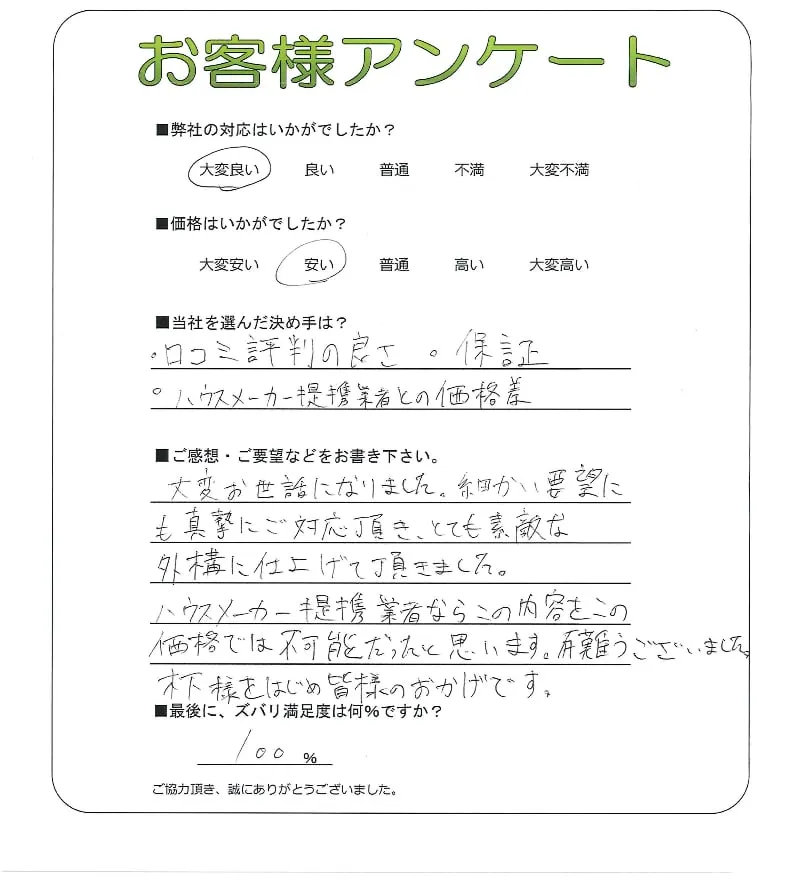 お客様アンケート
■弊社の対応はいかがでしたか？
大変良い 良い 普通 不満 大変不満
■価格はいかがでしたか？
大変安い 安い 普通 高い 大変高い
■当社を選んだ決め手は？
・口コミ評判の良さ ・保証
・ハウスメーカー提携業者との価格差
■ご感想・ご要望などをお書き下さい。
大変お世話になりました。細かい要望に
も真摯にご対応頂き、とても素敵な
外構に仕上げて頂きました。
ハウスメーカー提携業者ならこの内容をこの
価格では不可能だったと思います。有難うございました。
木下様をはじめ皆様のおかげです。
■最後に、ズバリ満足度は何％ですか？
100 ％
ご協力頂き、誠にありがとうございました。